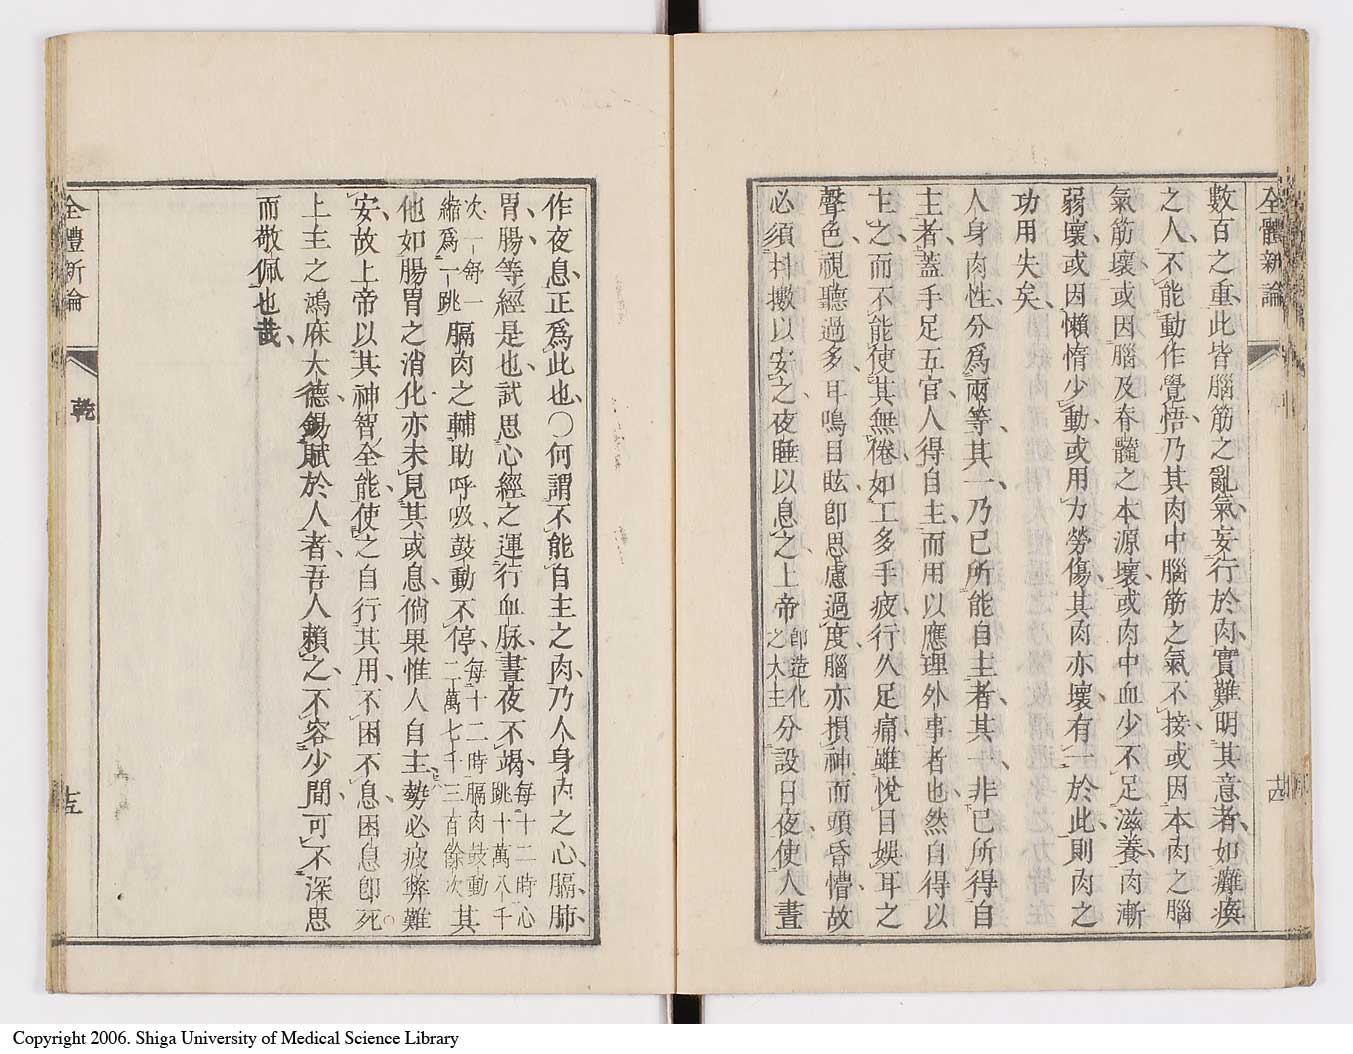 全體新論
十四
數百之重此皆腦筋之亂氣妄行於肉實難明其意者如癱瘓
之人不能動作覺悟乃其肉中腦筋之氣不接或因本肉之腦
氣筋壞或因腦及脊髓之本源壞或肉中血少不足滋養肉漸
弱壞或因懶惰少動或用力勞傷其肉亦壞有一於此則肉之
功用失矣
人身肉性分為兩等其一乃已所能自主者其一非已所得自
主者蓋手足五官人得自主而用以應理外事者也然自得以
主之而不能使其無倦如工多手疲行久足痛雖悅目娛耳之
聲色視聽過多耳鳴目眩卽思慮過度腦亦損神而頭昏懵故
必須抖擻以安之夜睡以息之上帝卽造化之大主分設日夜使人晝
作夜息正爲此也〇何謂不能自主之肉乃人身內之心膈肺
胃腸等經是也試思心經之運行血脉晝夜不竭每十二時心跳十萬八千
次一舒一縮爲一跳膈肉之輔助呼吸鼓動不停每十二時膈肉鼓動二萬七千三百餘次其
他如腸胃之消化亦未見其或息倘果惟人自主勢必疲弊難
安故上帝以其神智全能使之自行其用不困不息困息卽死
上主之鴻庥大德錫賦於人者吾人賴之不容少間可不深思
而敬佩也哉
全體新論
乾
十五
Copyright 2006. Shiga University of Medical Science Library